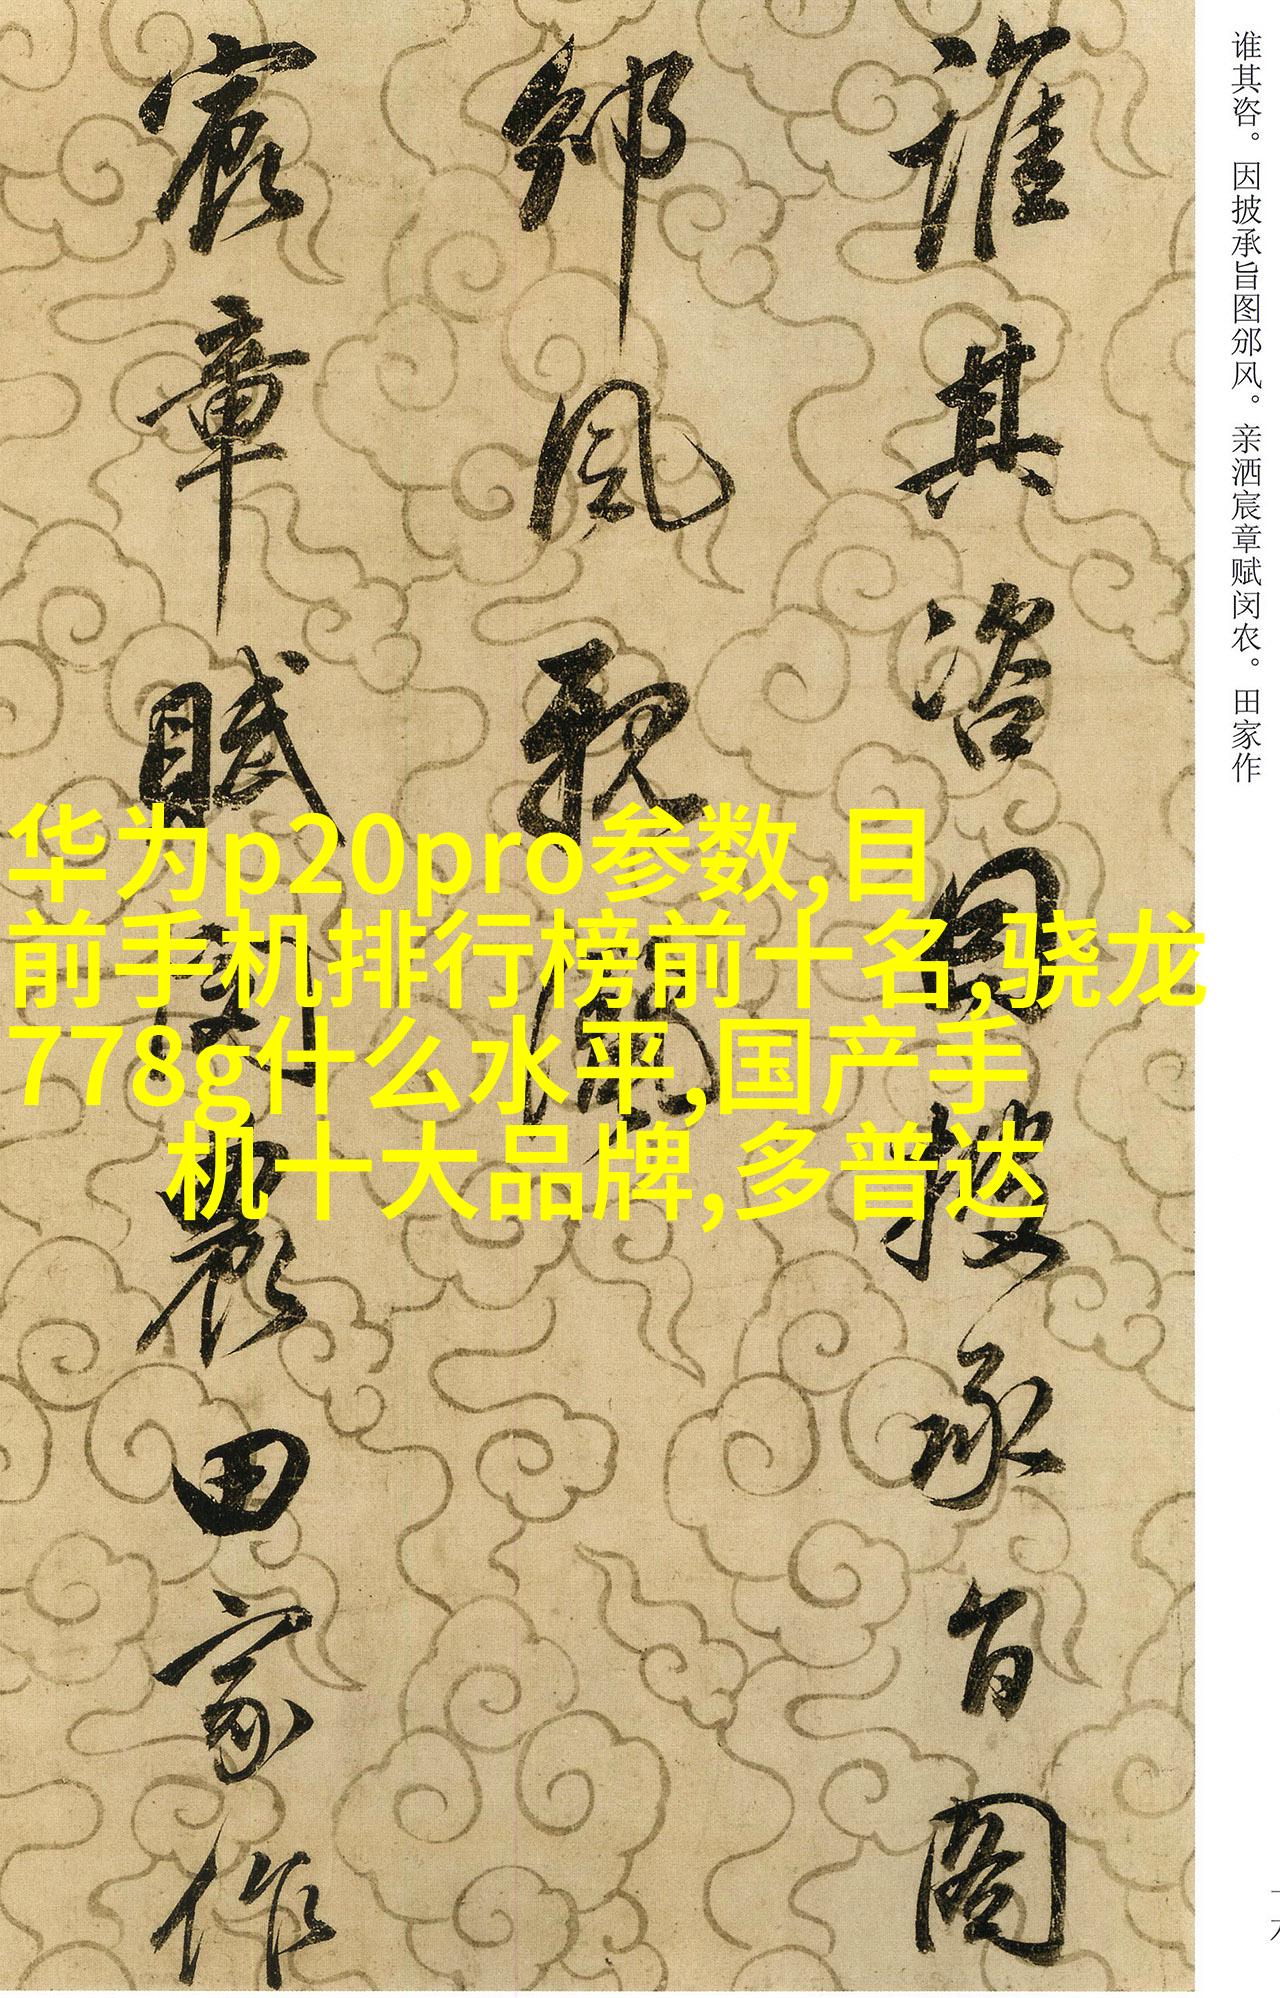 谁其咨。因披承旨图邠风。亲洒宸章赋闵农。田家作
誰其咨因披承旨圖
邠風親灑
宸章賦閔農田家作
华为p20pro参数,目
前手机排行榜前十名,骁龙
778g什么水平,国产手
机十大品牌,多普达